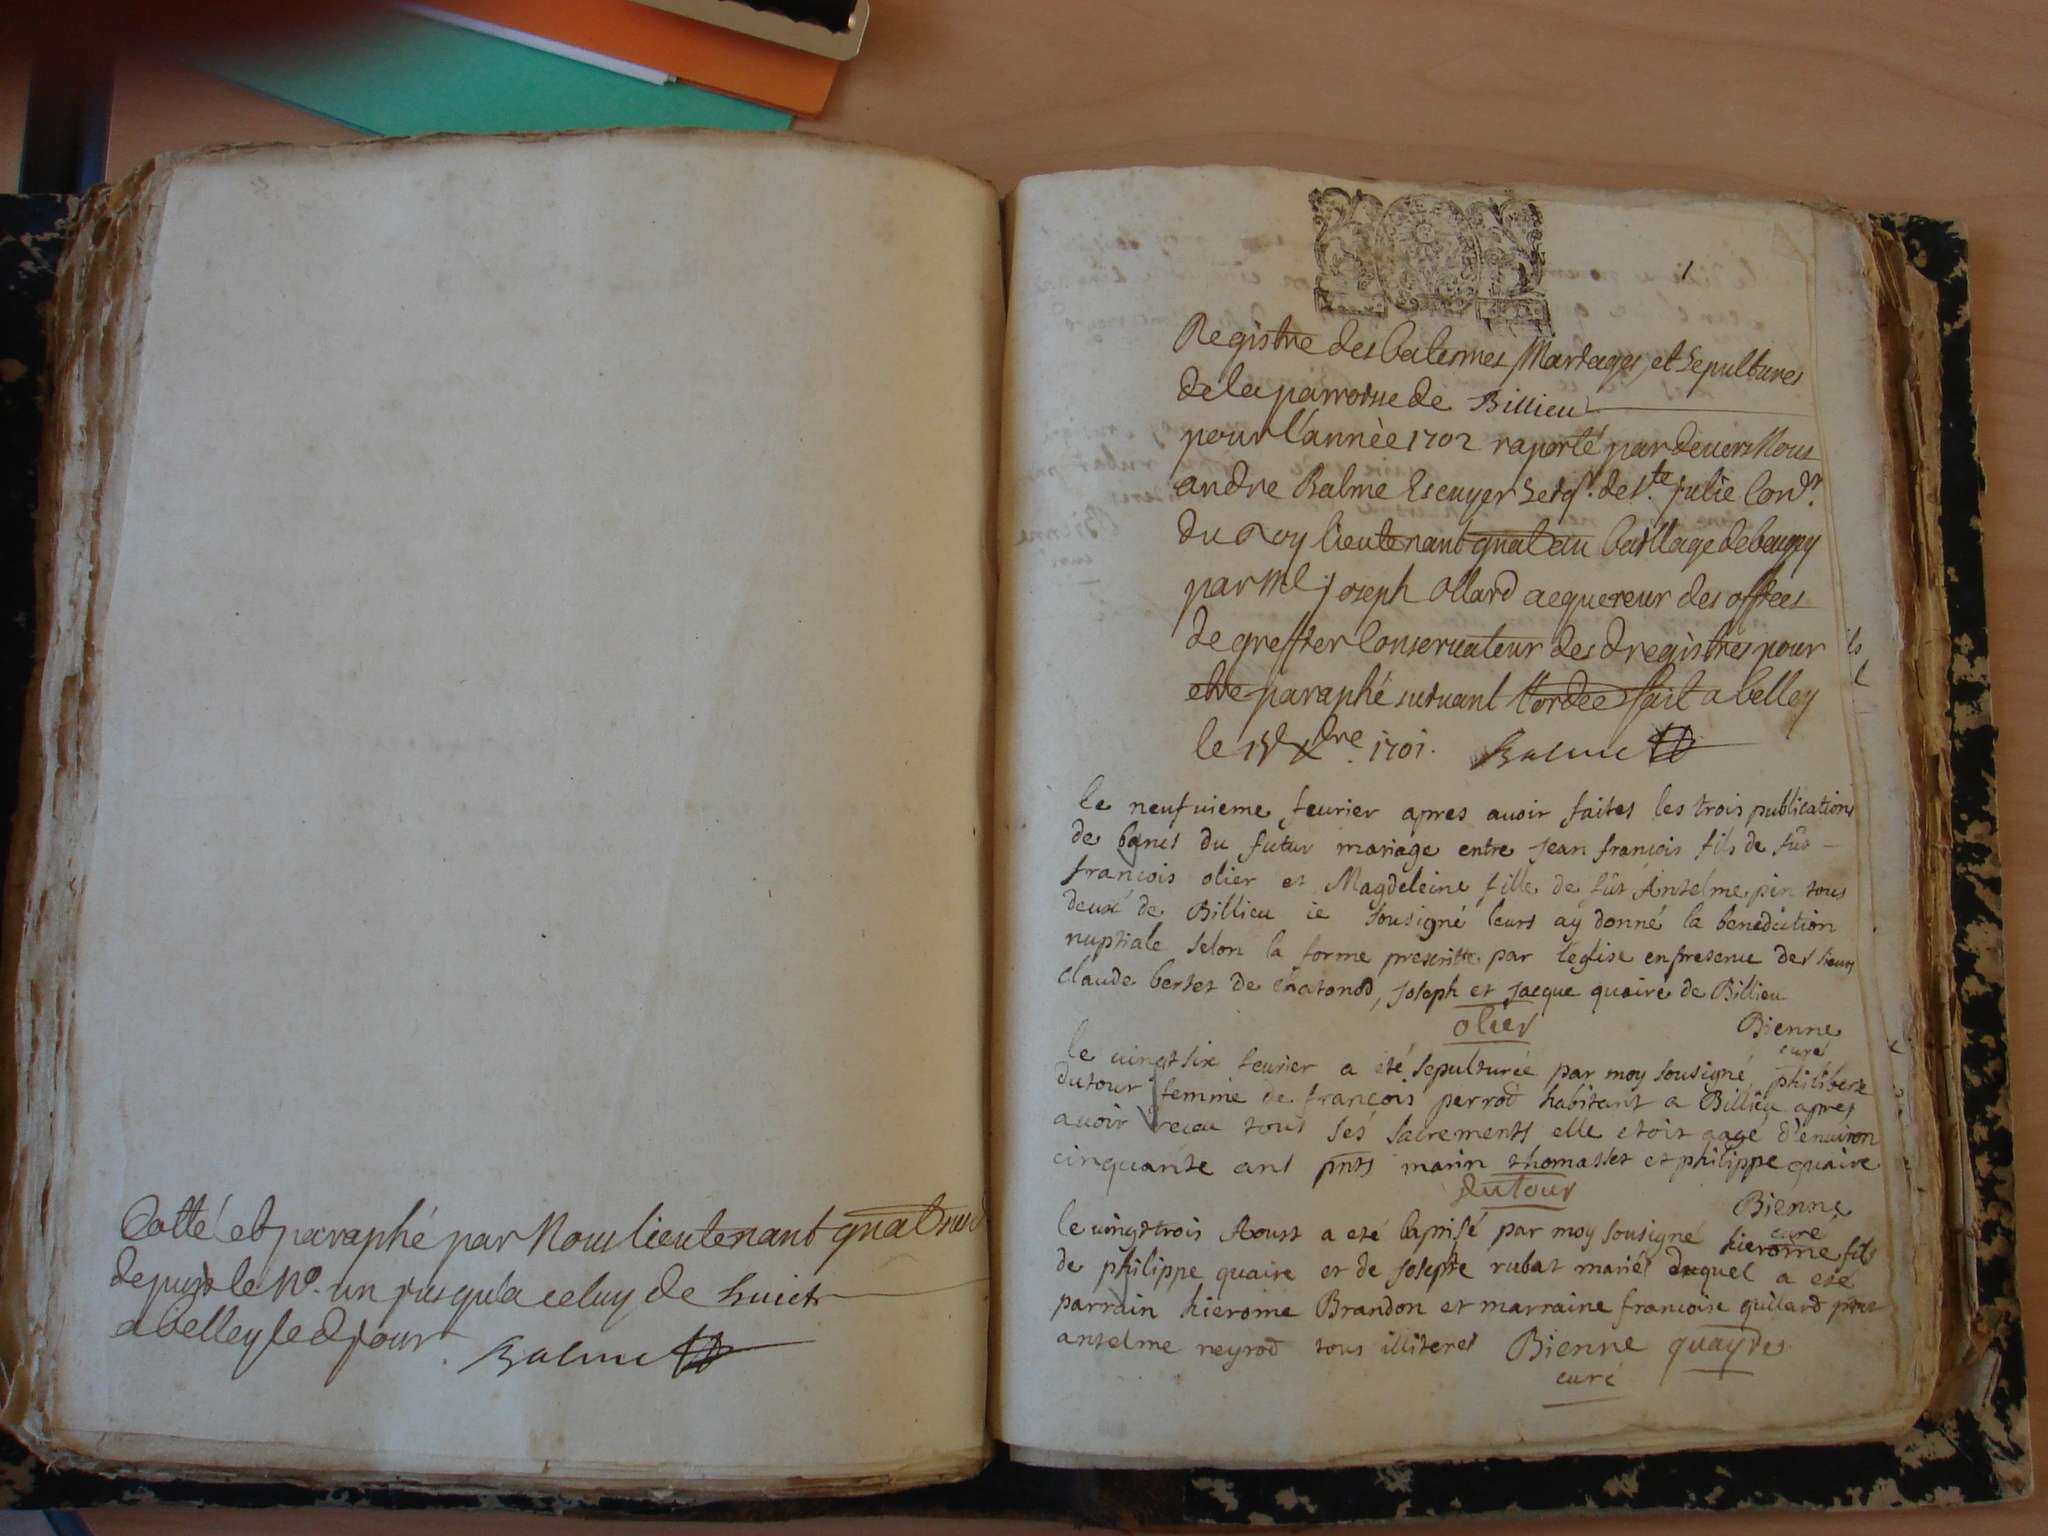 Cotté et paraphé par Nous lieutenant gnal susd
depuis le No. un jusqu'a celuy de huict
a belley le d jour. Balme
1
Registre des batesmes, Mariages, et Sepultures
de la parroisse de Billieu
pour l'année 1702 raporté pardevers Nous
andre Balme Escuyer Seigr. de Ste. julie Conr.
du Roy lieutenant gnal au bailliage de bougey
par Me joseph Ollard acquereur des offices
de greffier Conservateur des d registres pour
etre paraphé suivant l'ordce fait a belley
le 15e Xbre. 1701. Balme
le neufuieme feurier apres auoir faites les trois publications
de bancs du futur mariage entre jean françois fils de fût
françois olier et Magdeleine fille de fût Anselme pin tous
deux de Billieu ie sousigné leurs ay donné la benediction
nuptiale selon la forme prescritte par l'eglise en presence des sieurs
Claude bertet de chatonod, joseph et jacque quaire de Billieu
olier Bienne
curé
le uingt six feurier a eté sepulturée par moy sousigné philiberte
dutour femme de françois perrod habitant a Billieu apres
auoir receu tous ses sacrements elle etoit aagé d'enuiron
cinquante ans pnts marin thomasset et philippe quaire
dutour Bienne
curé
le uingt trois Aoust a eté baptisé par moy sousigné hierome fils
de philippe quaire et de josepte rubat mariés duquel a eté
parrain hierome Brandon et marraine francoise guillard pnt
anselme neyrod tous illiteres Bienne quayres
curé